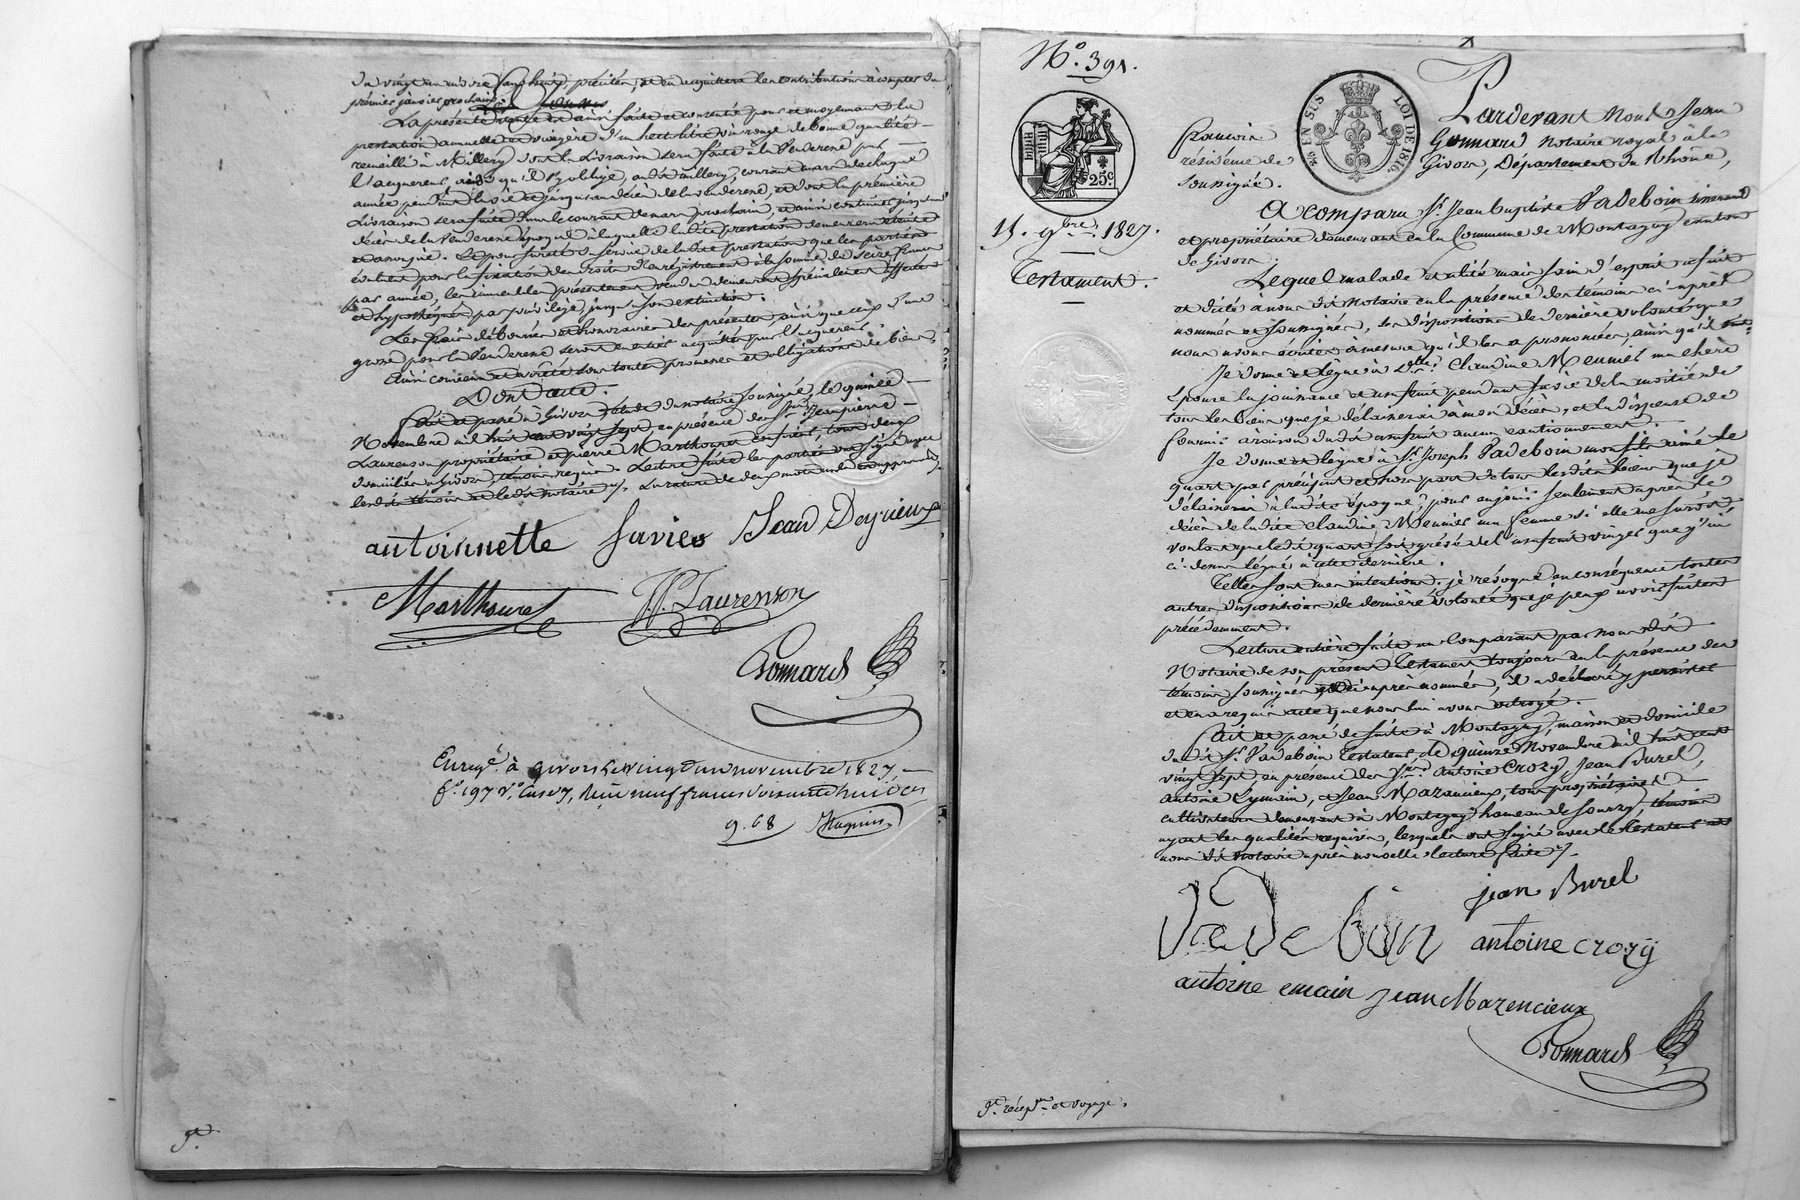 du vingt un mil huit précités, et en acquittera les contributions à compter du
premier janvier prochain.
La présente vente est ainsi faite et consentie pour et moyennant la
prestation annuelle et viagère d'un hectolitre vin rouge de bonne qualité
recueilli à Millery, dont la livraison sera faite à la Venderesse par
l'acquéreur, ainsi qu'il s'y oblige, audit Millery, courant mars de chaque
année pendant la vie et jusqu'au décès de la venderesse, et dont la première
livraison sera faite dans le courant de mars prochain, et ainsi continuer jusqu'au
décès de la Venderesse époque à laquelle la dite prestation demeurera éteinte
et amortie. Et pour sureté du service de la dite prestation que les parties
évaluent pour la fixation des droits d'enregistrement à la somme de seize francs
par année, les immeubles présentement vendus demeurent spécialement affectés
et hypothéqués par privilège, jusqu'à son extinction.
Les frais déboursés et honoraires des présentes ainsi que ceux d'une
grosse pour la Venderesse seront en entier acquittés par l'acquéreur.
Ainsi convenu et arrêté sous toutes promesses et obligations de biens.
Dont acte.
Fait et passé à Givors étude du notaire soussigné, le quinze
Novembre mil huit cent vingt sept, en présence des Srs Jean pierre
Laurenson propriétaire et pierre Marthouret confiseur, tous deux
domiciliés à Givors, témoins requis. Lecture faite les parties ont signé avec
lesdits témoins et ledit notaire. La rature de deux mots nuls est approuvée.
antoinnette favier Jean Deyrieux
Marthouret JP. Laurenson
Gonnard
Enregé. à givors le vingt un novembre 1827,
fo. 197 Vo. Case 7, Reçu neuf francs soixante huit ces
9.68 Huguin
No. 391.
25c
15. 9bre. 1827.
Testament.
EN SUS
LOI DE 1816.
Pardevant Nous Jean
François Gonnard notaire royal à la
résidence de Givors, Département du Rhône,
soussigné.
A comparu Sr. Jean Baptiste Vadeboin tisserand
et propriétaire demeurant en la Commune de Montagny canton
de Givors.
Lequel malade et alité mais sain d'esprit a fait
et dicté à nous dit Notaire en la présence des témoins ci après
nommés et soussignés, ses dispositions de dernière volonté que
nous avons écrites à mesure qu'il les a prononcées ainsi qu'il suit:
Je donne et lègue à Dme. Claudine Meunier ma chère
épouse la jouissance et usufruit pendant sa vie de la moitié de
tous les biens que je délaisserai à mon décès, et la dispense de
fournir a raison dudit usufruit aucun cautionnement.
Je donne et lègue à Sr. Joseph Vadeboin mon fils ainé le
quart par préciput et hors part de tous les dits biens que je
délaisserai à ladite époque, pour en jouir seulement après le
décès de ladite Claudine Meunier ma femme si elle me survit,
voulant que ledit quart soit grévé de l'usufruit viager que j'ai
ci-dessus légué à cette dernière.
Telles sont mes intentions. je révoque en conséquence toutes
autres dispositions de dernière volonté que je peux avoir faites
précédemment.
Lecture entière faite au Comparant par nous dit
Notaire de son présent Testament toujours en la présence des
témoins soussignés et ci après nommés, il a déclaré y persister
et en a requis acte que nous lui avons octroyé.
Fait et passé de suite à Montagny, maison et domicile
du dit Sr. Vadeboin Testateur, le quinze Novembre mil huit cent
vingt sept, en présence des Srs. Antoine Crozy, Jean Burel,
Antoine Eymain, et Jean Mazencieux, tous propriétaires
cultivateurs demeurant à Montagny hameau de Sourzy, témoins
ayant les qualités requises, lesquels ont signé avec le Testateur et
nous dit notaire après nouvelle lecture faite.
jean Burel
VadeBoin antoine crozy
antoine emain jean Mazencieux
Gonnard
gt. récepon et voyage.
gt.